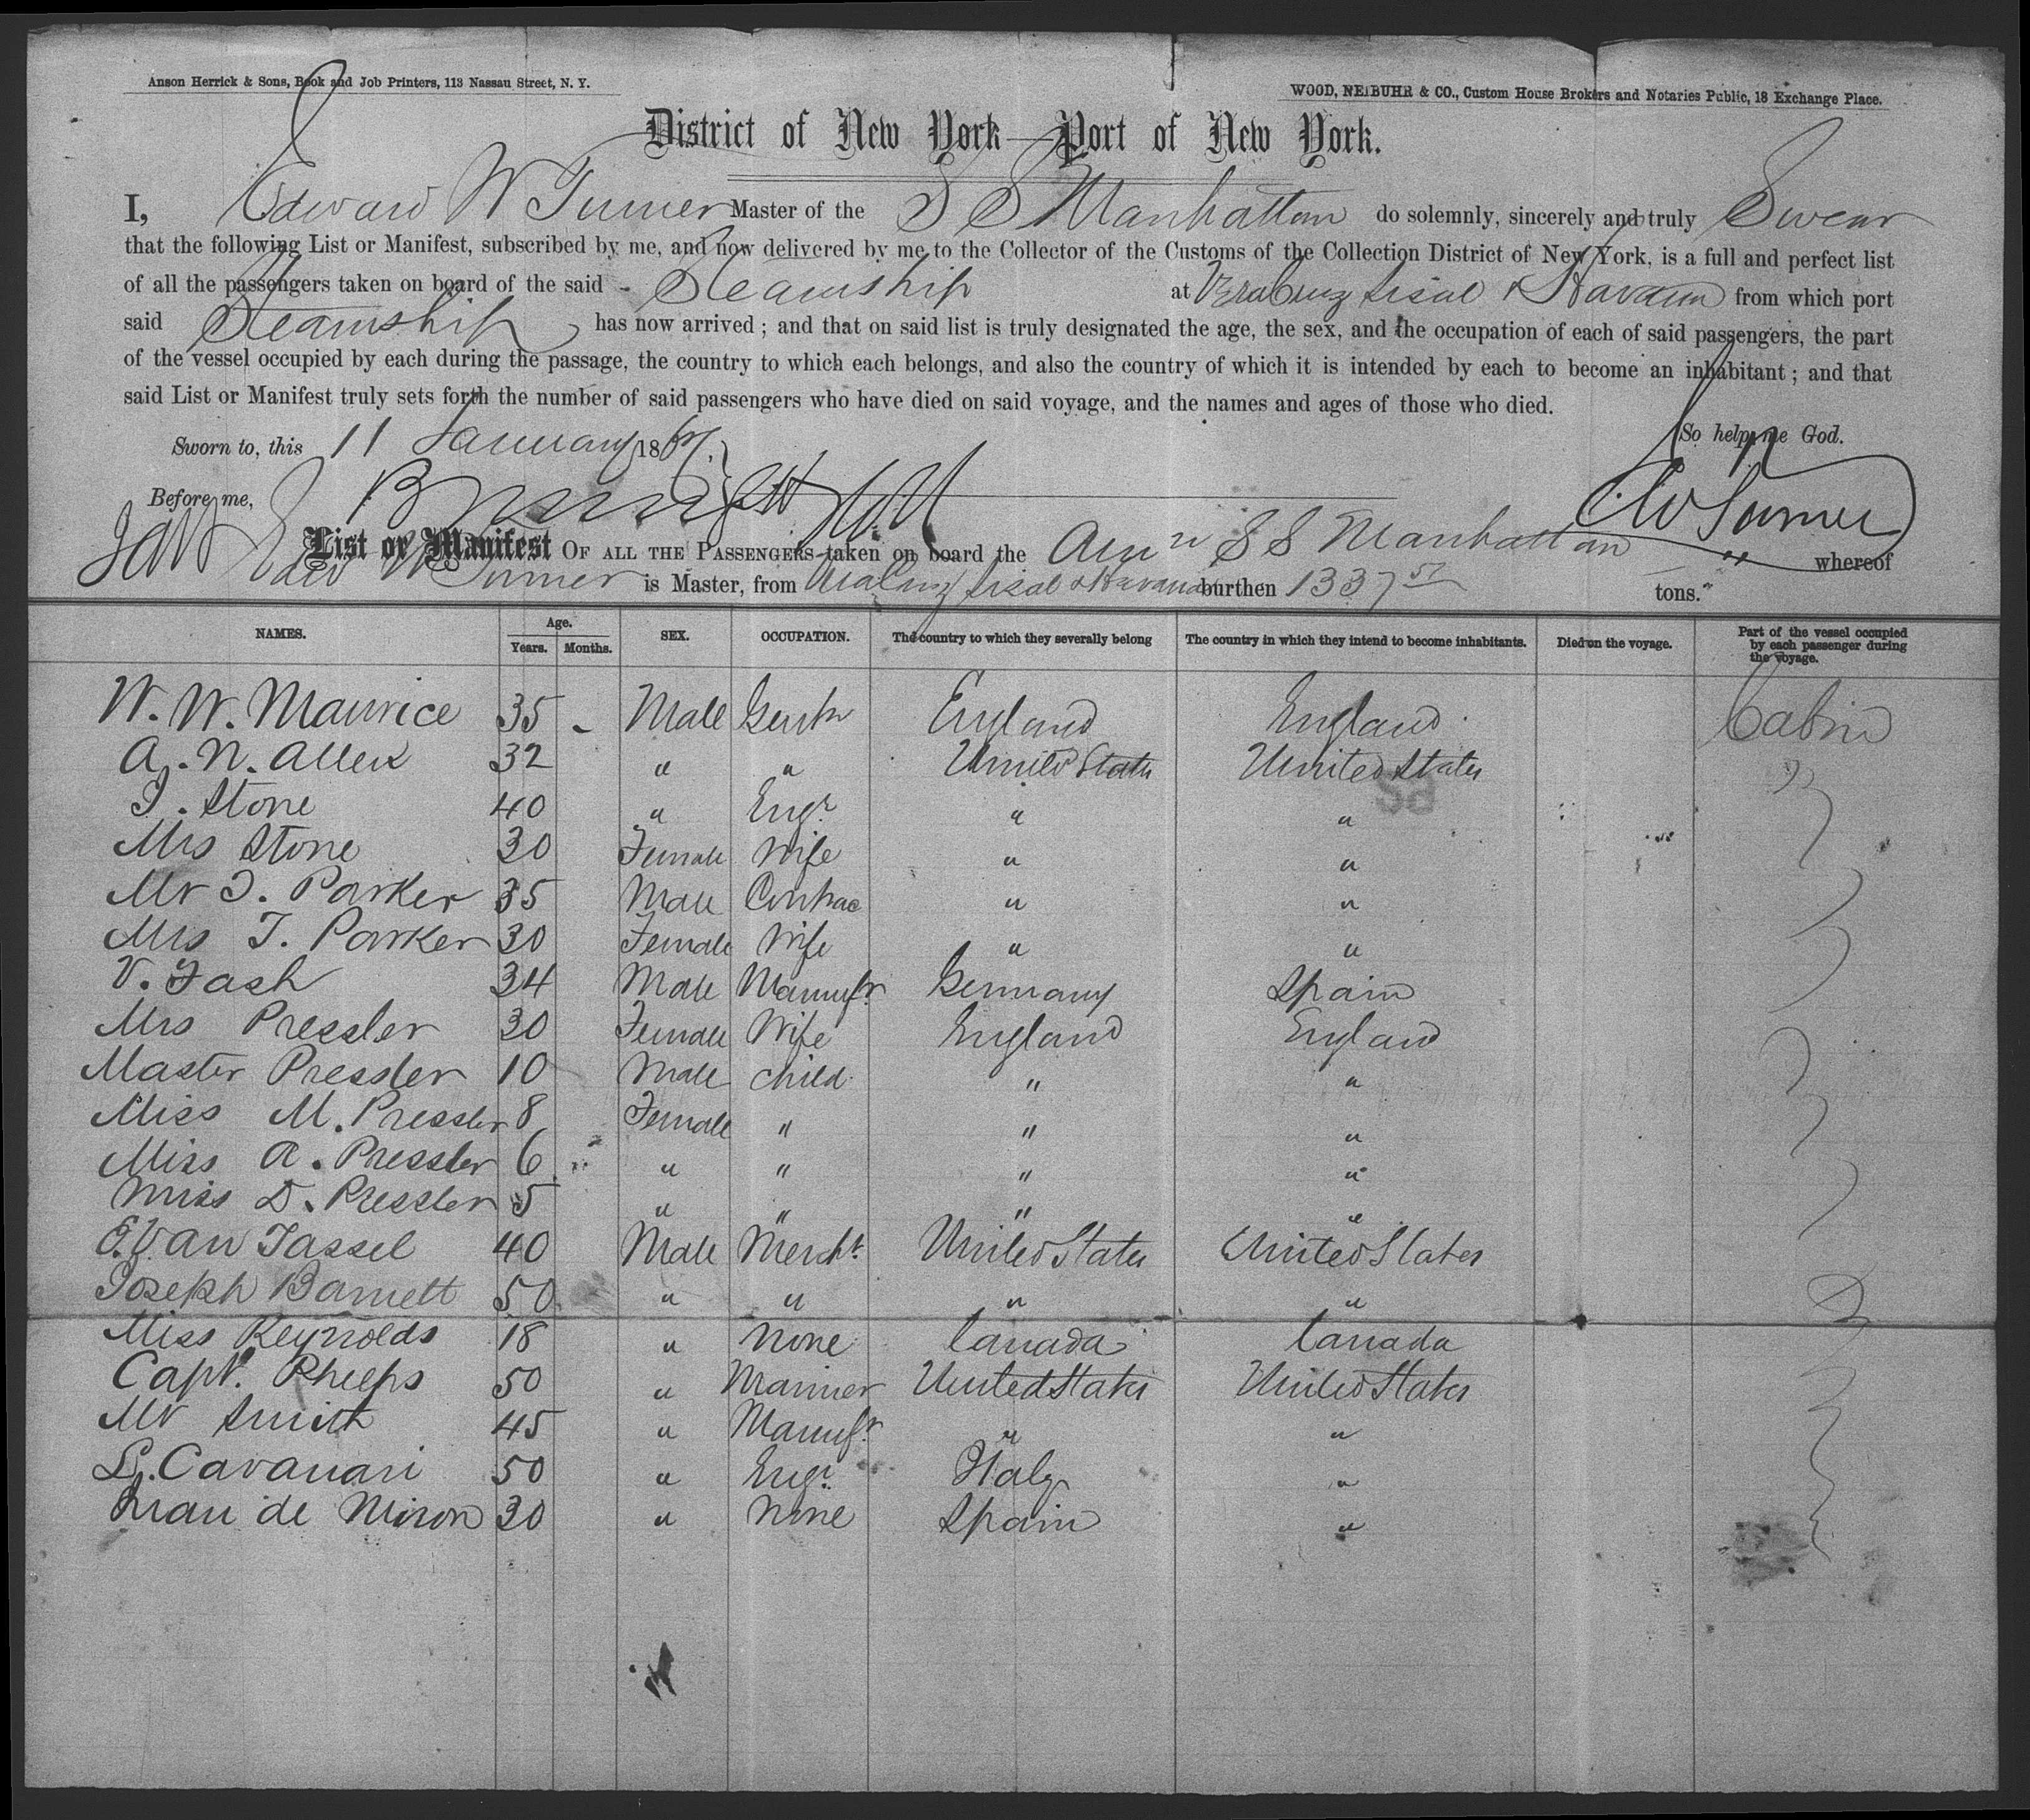 Anson Herrick & Sons, Book and Job Printers, 113 Nassau Street, N. Y.
WOOD, NEIBUHR & CO., Custom House Brokers and Notaries Public, 18 Exchange Place.
District of New York—Port of New York.
I, Edward W Turner Master of the S S Manhattan do solemnly, sincerely and truly Swear
that the following List or Manifest, subscribed by me, and now delivered by me to the Collector of the Customs of the Collection District of New York, is a full and perfect list
of all the passengers taken on board of the said Steamship at Vera Cruz Sisal & Havana from which port
said Steamship has now arrived ; and that on said list is truly designated the age, the sex, and the occupation of each of said passengers, the part
of the vessel occupied by each during the passage, the country to which each belongs, and also the country of which it is intended by each to become an inhabitant ; and that
said List or Manifest truly sets forth the number of said passengers who have died on said voyage, and the names and ages of those who died.
Sworn to, this 11 January 186
So help me God.
Before me,
E W Turner
List or Manifest OF ALL THE PASSENGERS taken on board the Amn S S Manhattan " whereof
Edw W Turner is Master, from Vera Cruz Sisal & Havana burthen 1337 57 tons.
NAMES. Age. Years. Months. SEX. OCCUPATION. The country to which they severally belong The country in which they intend to become inhabitants. Died on the voyage. Part of the vessel occupied by each passenger during the voyage.
W. W. Maurice 35 - Male Gentn England England Cabin
A. N. Allen 32 " " United States United States "
J. Stone 40 " Engr " "
Mrs Stone 30 Female Wife " "
Mr J. Parker 35 Male Contrac " "
Mrs J. Parker 30 Female Wife " "
V. Fash 34 Male Manufr Germany Spain
Mrs Pressler 30 Female Wife England England
Master Pressler 10 Male child " "
Miss M. Pressler 8 Female " " "
Miss A. Pressler 6 " " " "
Miss D. Pressler 5 " " " "
E. Van Tassel 40 Male Mercht United States United States
Joseph Barnett 50 " " " "
Miss Reynolds 18 " none Canada Canada
Capt. Phelps 50 " Mariner United States United States
Mr Smith 45 " Manufr " "
L. Cavanari 50 " Engr Italy "
Juan de Miron 30 " none Spain "